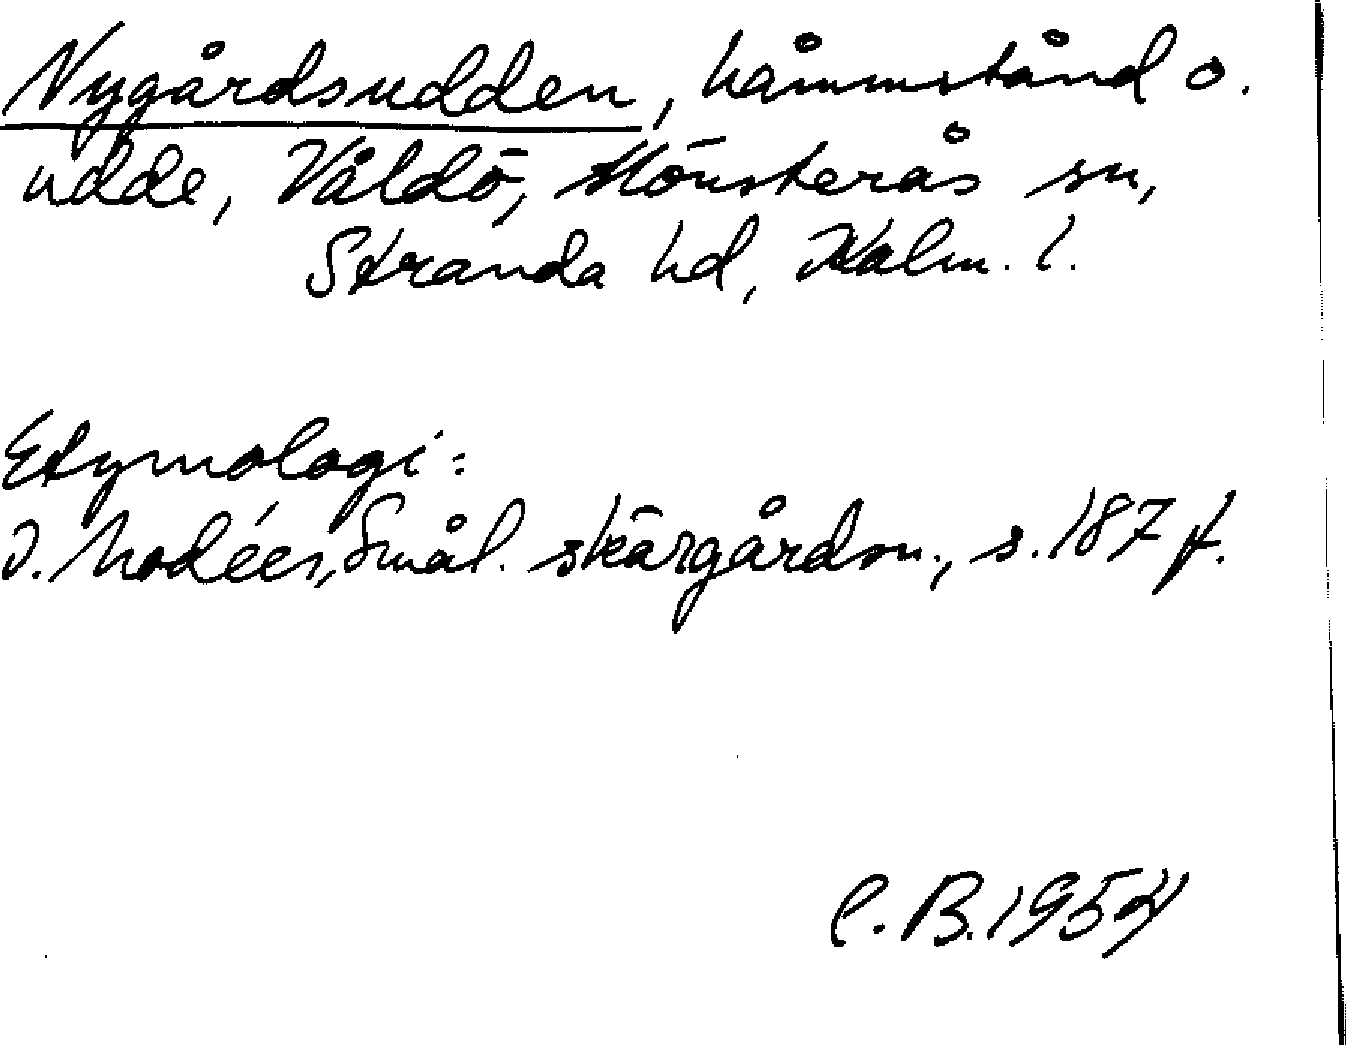 Nygårdsudden, håmmstånd o.
udde, Våldö, Mönsterås sn,
Stranda hd, Kalm. l.
Etymologi:
I. Modéer, Smål. skärgårdsn., s. 187 f.
C. B. 1954